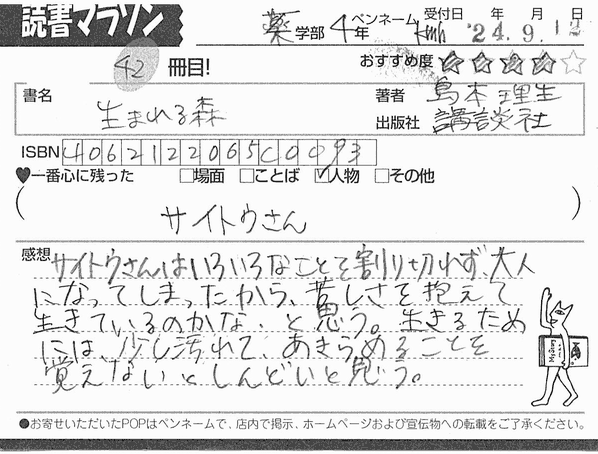 読書マラソン
薬学部4年 ペンネーム kmh 受付日 '24年9月12日
42冊目! おすすめ度 ★★★★☆
書名 生まれる森
著者 島本理生
出版社 講談社
ISBN 4062122065C0093
♥一番心に残った □場面 □ことば ☑人物 □その他
( サイトウさん )
感想 サイトウさんはいろいろなことを割り切れず、大人
になってしまったから、苦しさを抱えて
生きているのかな、と思う。生きるため
には、少し汚れて、あきらめることを
覚えないとしんどいと思う。
●お寄せいただいたPOPはペンネームで、店内で掲示、ホームページおよび宣伝物への転載をご了承ください。